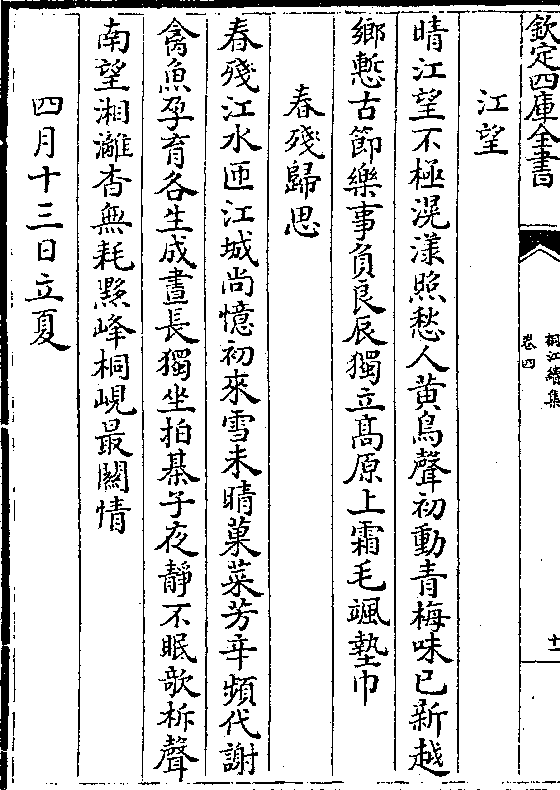 欽定四庫全書
桐江續集
卷四
十一
江望
晴江望不極滉漾照愁人黄鳥聲初動青梅味已新越
鄉慙古節樂事負良辰獨立髙原上霜毛颯墊巾
春殘歸思
春殘江水匝江城尚憶初來雪未晴菓菜芳辛頻代謝
禽魚孕育各生成晝長獨坐拍棊子夜靜不眠歌柝聲
南望湘灕杳無耗黟峰桐峴最闗情
四月十三日立夏